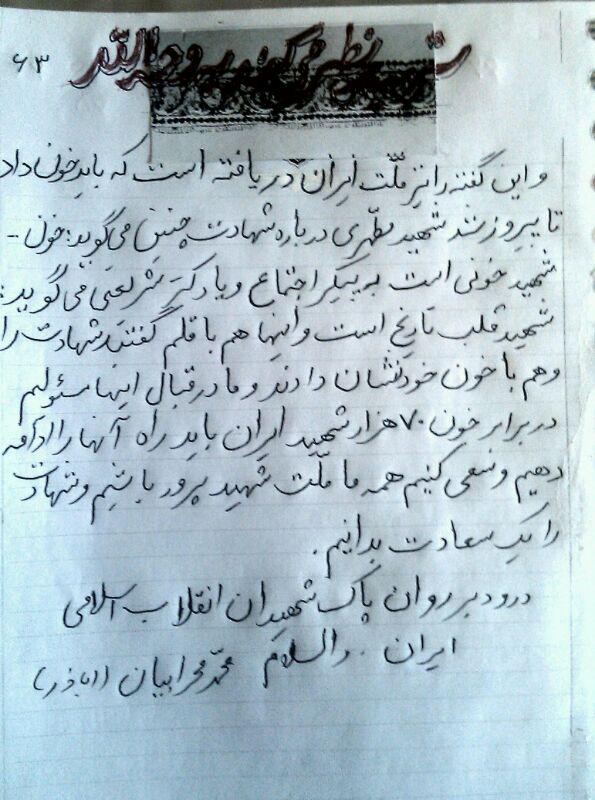 ۶۳
نظر می‌کند به وجه الله
و این گفته را نیز ملّت ایران دریافته است که باید خون داد
تا پیروز شد شهید مطهّری درباره شهادت چنین می‌گوید: خون -
شهید خونی است به پیکر اجتماع و یا دکتر شریعتی می‌گوید:
شهید قلب تاریخ است و اینها هم با قلم گفتند شهادت را
و هم با خون خودشان دادند و ما در قبال اینها مسئولیم
در برابر خون ۷۰ هزار شهید ایران باید راه آنها را ادامه
دهیم و سعی کنیم همه ما ملّت شهید پرور باشیم و شهادت
را یک سعادت بدانیم.
درود بر روان پاک شهیدان انقلاب اسلامی
ایران. والسلام محمّد محرابیان (اباذر)